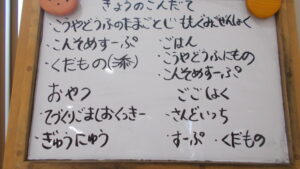 きょうのこんだて
・こうやどうふのたまごとじ
・こんそめすーぷ
・くだもの(添)
おやつ
・てづくりごましおくっきー
・ぎゅうにゅう
ももぐみ
・ごはん
・こうやどうふにもの
・こんそめすーぷ
・さんどいっち
・すーぷ ・くだもの